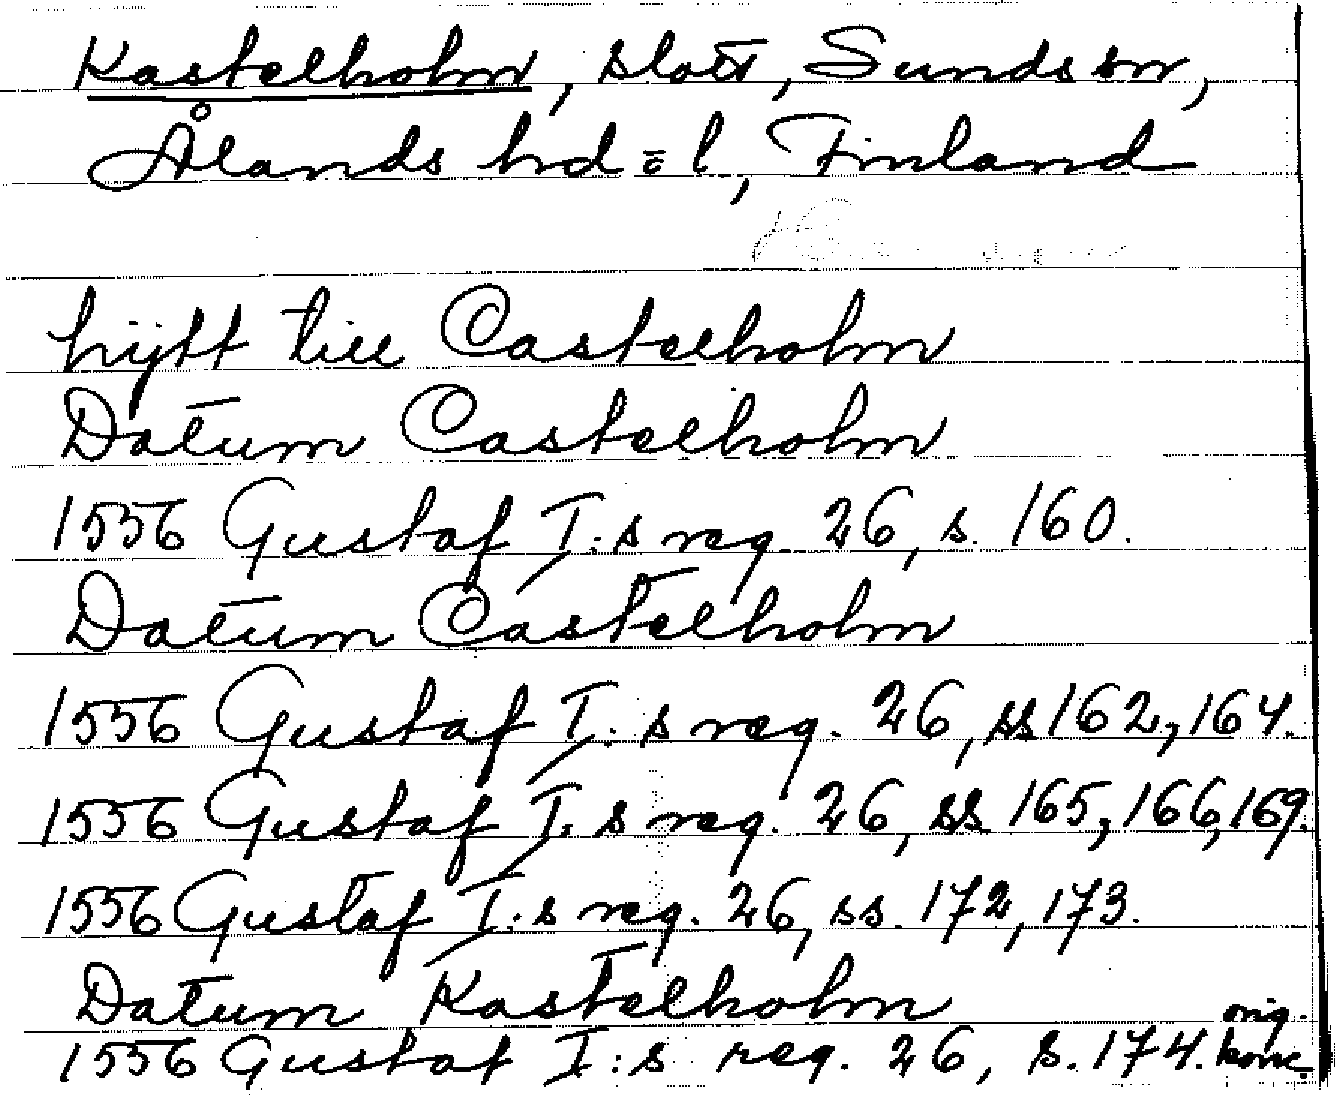 Kastelholm, slott, Sunds sn,
Ålands hd = l, Finland
hijtt till Castelholm
Datum Castelholm
1556 Gustaf I:s reg. 26, s. 160.
Datum Castelholm
1556 Gustaf I:s reg. 26, ss 162, 164.
1556 Gustaf I:s reg. 26, ss 165, 166, 169.
1556 Gustaf I:s reg. 26, ss. 172, 173.
Datum Kastelholm
1556 Gustaf I:s reg. 26, s. 174. orig. konc.